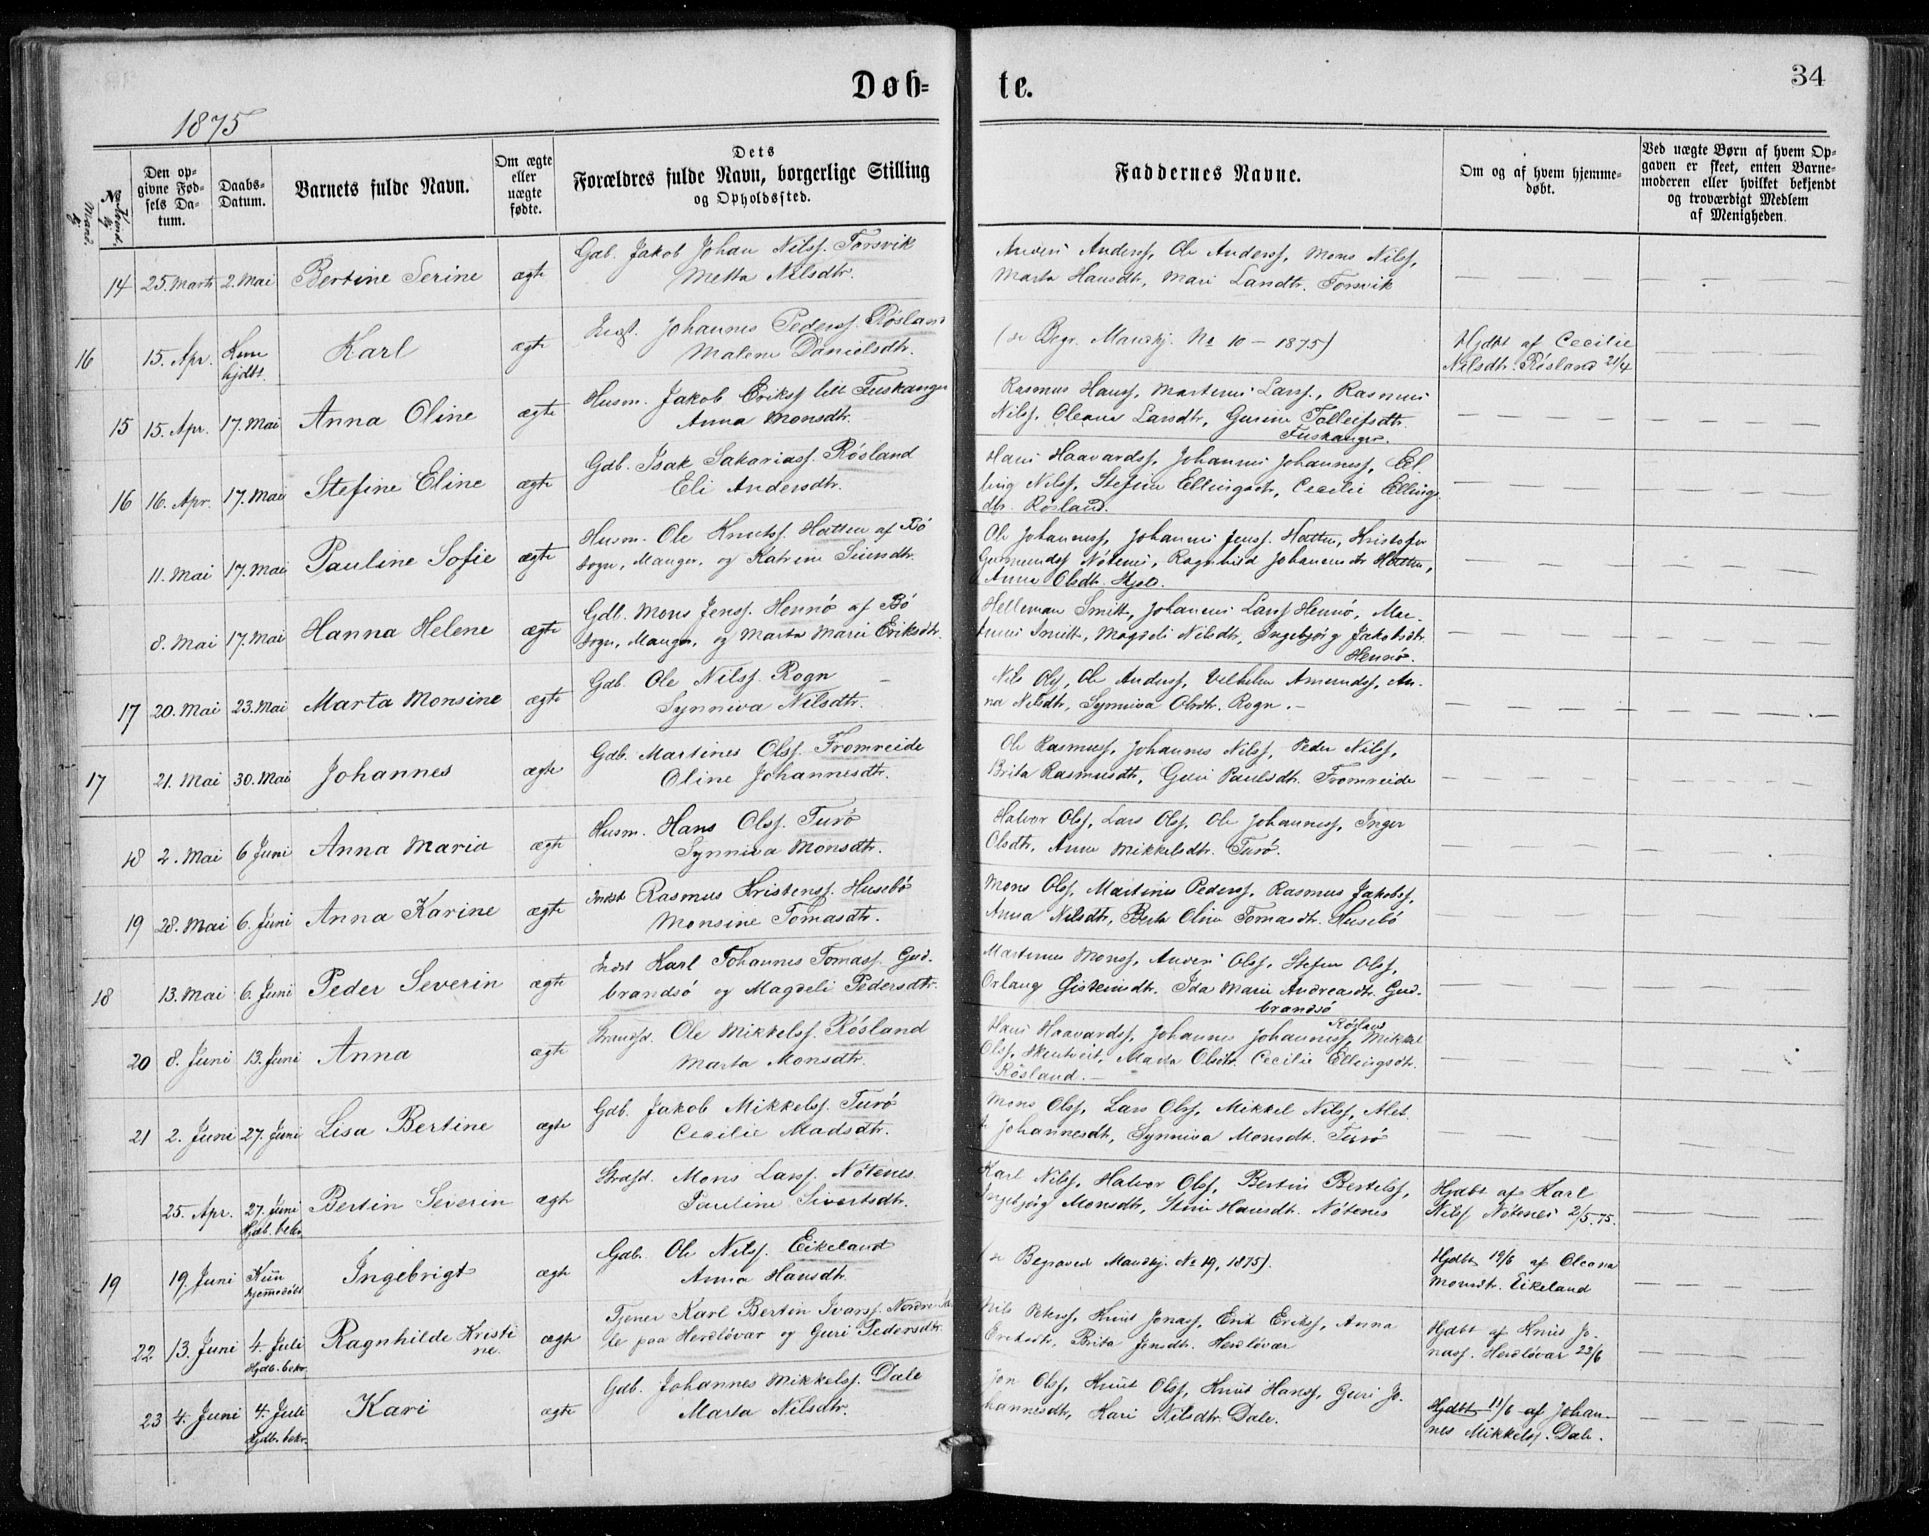 Døb-
te.
34
1875
Mandkj.
No Kvindekj.
Den op-
givne Fød-
sels Da-
tum.
Daabs-
Datum.
Barnets fulde Navn.
Om ægte
eller
uægte
fødte.
Dets
Forældres fulde Navn, borgerlige Stilling
og Opholdssted.
Faddernes Navne.
Om og af hvem hjemme-
døbt.
Ved uægte Børn af hvem Op-
gaven er skeet, enten Barne-
moderen eller hvilket bekjendt
og troværdigt Medlem
af Menigheden.
14 25. Marts 2. Mai Bertine Serine ægte
Gdb. Jakob Johan Nilss. Forsvik
Metta Nilsdtr.
Anders Anderss, Ole Anderss, Mons Nilss,
Marta Hansdtr, Mari Larsdtr. Forsvik
16 15. Apr. Kun
hjdbt. Karl ægte
Johannes Pederss. Røsland
Malene Danielsdtr.
(se Begr. Mandkj. No 10 - 1875)
Hjdbt af Cecilie
Nilsdtr. Røsland 21/4
15 15. Apr. 17. Mai Anna Oline ægte
Husm. Jakob Erikss lille Fuskanger
Anna Monsdtr.
Rasmus Hanss, Martenus Larss., Rasmus
Nilss, Oleane Larsdtr, Gurine Tolleifsdtr.
Fuskanger.
16 16. Apr. 17. Mai Stefine Eline ægte
Gdb. Isak Sakariass. Røsland
Eli Andersdtr.
Hans Haavardss, Johannes Johanness, El-
ling Nilss, Stefine Ellingsdtr, Cecilie Ellings-
dtr. Røsland.
11. Mai 17. Mai Pauline Sofie ægte
Husm. Ole Knutss. Hatten af Bø
Sogn, Manger, og Katrine Simsdtr.
Ole Johanness, Johannes Jenss. Hatten, Kristofer
Gurmundss Nøtenes, Ragnhild Johannesdtr Hatten,
Anna Olsdtr. Hjelt.
8. Mai 17. Mai Hanna Helene ægte
Gdb. Mons Jenss. Hennø af Bø
Sogn, Manger, og Marta Marie Eriksdtr.
Helleman Smitt, Johannes Larss Hennø, Mar-
Smitt, Magdeli Nilsdtr, Ingebjørg Jakobsdtr.
Hennø.
17 20. Mai 23. Mai Marta Monsine ægte
Gdb. Ole Nilss. Rogn
Synniva Nilsdtr.
Nils Olss, Ole Anderss, Vilhelm Amundss, An-
na Nilsdtr, Synniva Olsdtr. Rogn.
17 21. Mai 30. Mai Johannes ægte
Gdb. Martines Olss. Fromreide
Oline Johannesdtr.
Ole Rasmuss, Johannes Nilss, Peder Nilss,
Brita Rasmusdtr, Guri Paulsdtr. Fromreide
18 2. Mai 6 Juni Anna Maria ægte
Husm. Hans Olss. Turø
Synniva Monsdtr.
Halvor Olss, Lars Olss, Ole Johanness, Inger
Olsdtr, Anna Mikkelsdtr. Turø.
19 28. Mai 6. Juni Anna Karine ægte
Indst Rasmus Kristenss. Husebø
Monsine Tomasdtr.
Mons Olss, Martinus Pederss, Rasmus Jakobss,
Anna Nilsdtr, Berta Oline Tomasdtr. Husebø
18 13. Mai 6. Juni Peder Severin ægte
Indst Karl Johannes Tomass. Gud-
brandsø og Magdeli Pedersdtr.
Martenus Monss, Anders Olss, Stefen Olss,
Orlaug Gisteinsdtr. Ida Marie Andreasdtr. Gud-
brandsø
20 8. Juni 13. Juni Anna ægte
Strandsd. Ole Mikkelss. Røsland
Marta Monsdtr.
Hans Haavardss, Johannes Johanness, Røsland Mikkel
Olss, Skutveit, Marta Olsdtr. Cecilie Ellingsdtr.
Røsland.
21 2. Juni 27. Juni Lisa Bertine ægte
Gdb. Jakob Mikkelss. Turø
Cecilie Madsdtr.
Mons Olss, Lars Olss, Mikkel Nilss, Alet
Johannesdtr, Synniva Monsdtr. Turø
25. Apr. 27. Juni
Hjdb. bekr. Bertin Severin ægte
Strdsd. Mons Larss. Nøtenes
Pauline Sivertsdtr.
Karl Nilss, Halvor Olss, Bertin Bertelss,
Ingebjørg Monsdtr, Stine Hansdtr. Nøtenes
Hjdbt af Karl
Nilss Nøtenes 2/5.75.
19 19. Juni Kun
hjemmedøbt Ingebrigt ægte
Gdb. Ole Nilss. Eikeland
Anna Hansdtr.
(se Begravede Mandkj. No 19, 1875).
Hjdbt 19/6 af Oleana
Monsdtr. Eikeland
22 13. Juni 4. Juli
Hjdb. bekr. Ragnhilde Kristi
ne. ægte
Tjener Karl Bertin Ivarss. Nordre
le paa Herdløvær og Guri Pedersdtr.
Nils Peterss, Knut Jonass, Erik Erikss, Anna
Eriksdtr, Brita Jensdtr. Herdløvær
Hjdbt af Knut Jo-
nass. Herdløvær 23/6
23 4. Juni 4. Juli
Hjdb. bekr. Kari ægte
Gdb. Johannes Mikkelss. Dale
Marta Nilsdtr.
Jon Olss, Knut Olss, Knut Hanss, Guri Jo-
hannesdtr, Kari Nilsdtr. Dale.
Hjdbt 11/6 af Johan-
nes Mikkelss. Dale.